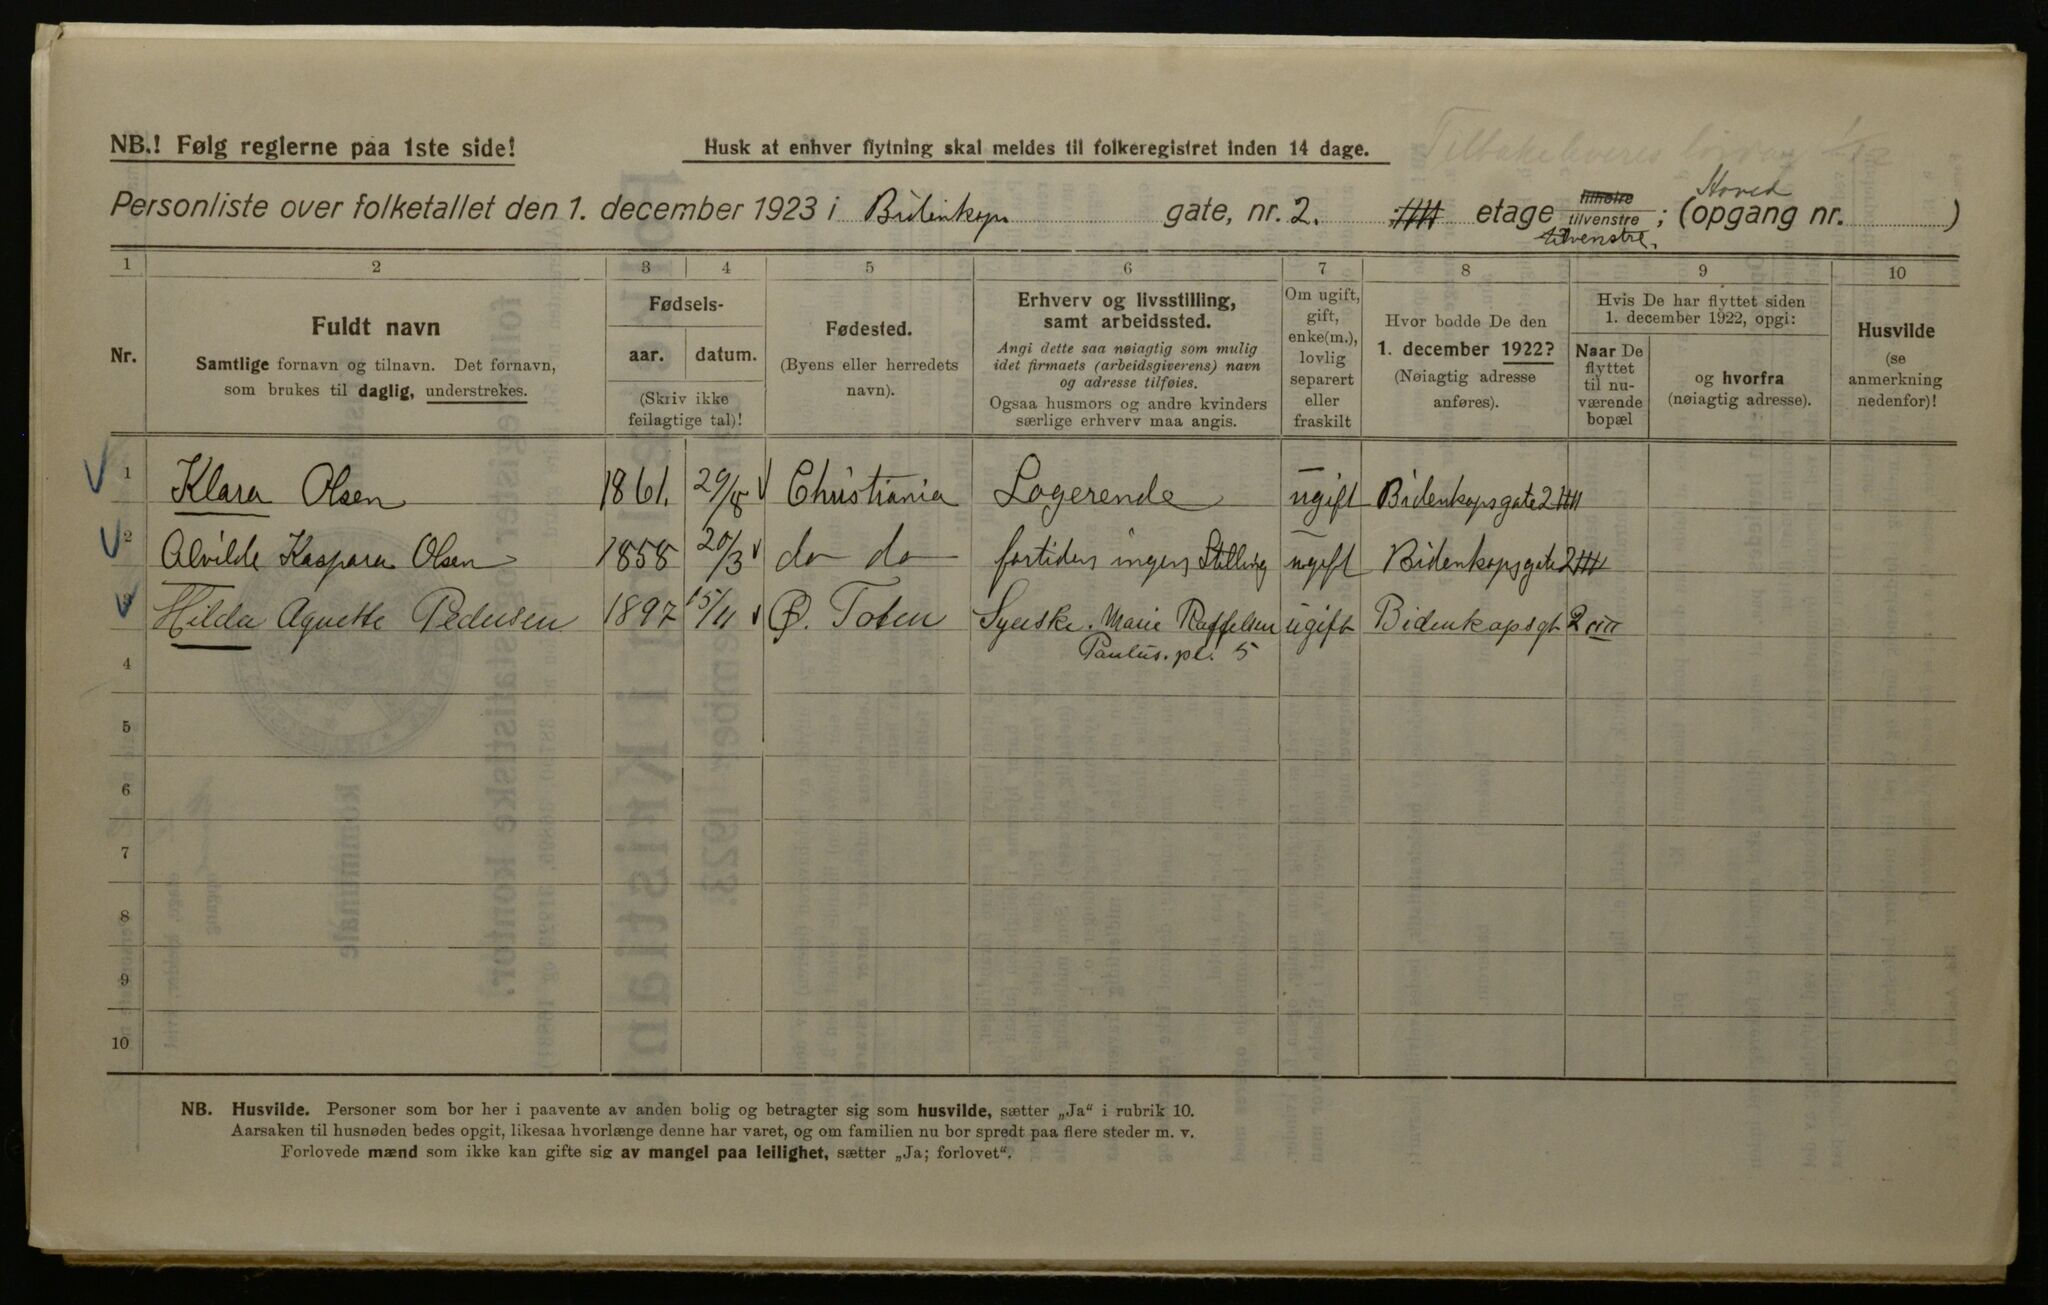 Tilbakeleveres lørdag 1/12
NB.! Følg reglerne paa 1ste side!
Husk at enhver flytning skal meldes til folkeregistret inden 14 dage.
Personliste over folketallet den 1. december 1923 i Bidenkops gate, nr. 2. IIII etage tilhøire tilvenstre tilvenstre. ; (opgang nr. Hoved )
1 2 3 4 5 6 7 8 9 10
Nr.
Fuldt navn
Samtlige fornavn og tilnavn. Det fornavn,
som brukes til daglig, understrekes.
Fødsels-
aar. datum.
(Skriv ikke
feilagtige tal)!
Fødested.
(Byens eller herredets
navn).
Erhverv og livsstilling,
samt arbeidssted.
Angi dette saa nøiagtig som mulig
idet firmaets (arbeidsgiverens) navn
og adresse tilføies.
Ogsaa husmors og andre kvinders
særlige erhverv maa angis.
Om ugift,
gift,
enke(m.),
lovlig
separert
eller
fraskilt
Hvor bodde De den
1. december 1922?
(Nøiagtig adresse
anføres).
Hvis De har flyttet siden
1. december 1922, opgi:
Naar De
flyttet
til nu-
værende
bopæl
og hvorfra
(nøiagtig adresse).
Husvilde
(se
anmerkning
nedenfor)!
1 Klara Olsen 1861. 29/8 Christiania Logerende ugift Bidenkopsgate 2 IIII
2 Alvilde Kaspara Olsen 1858 20/3 do do fortiden ingen Stilling ugift Bidenkopsgate 2 IIII
3 Hilda Agnette Pedersen 1897 15/11 Ø. Toten Syerske. Marie Raffelsen ugift Bidenkopsgt 2 IIII
Paulus. pl. 5
4
5
6
7
8
9
10
NB. Husvilde. Personer som bor her i paavente av anden bolig og betragter sig som husvilde, sætter „Ja“ i rubrik 10.
Aarsaken til husnøden bedes opgit, likesaa hvorlænge denne har varet, og om familien nu bor spredt paa flere steder m. v.
Forlovede mænd som ikke kan gifte sig av mangel paa leilighet, sætter „Ja; forlovet“.